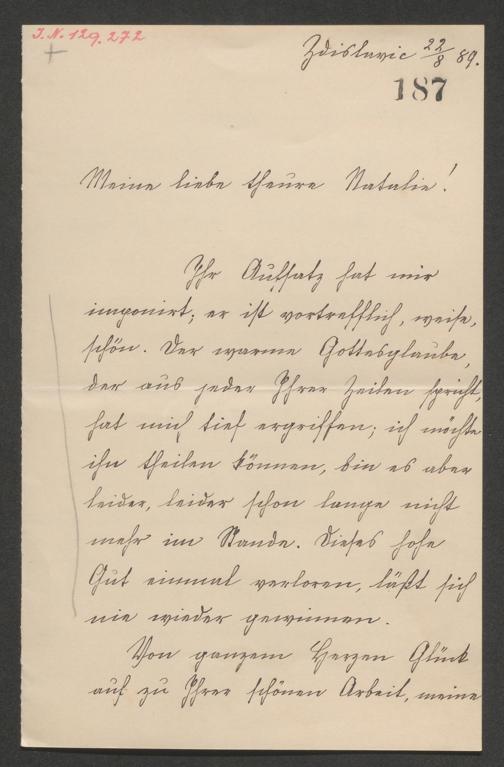 J.N. 129.272
Zdislavic 22/8 89.
187
Meine liebe theure Natalie!
Ihr Aufsatz hat mir
imponirt; er ist vortrefflich, weise,
schön. Der warme Gottesglaube,
der aus jeder Ihrer Zeilen spricht,
hat mich tief ergriffen; ich möchte
ihn theilen können, bin es aber
leider, leider schon lange nicht
mehr im Stande. Dieses hohe
Gut einmal verloren, läßt sich
nie wieder gewinnen.
Von ganzem Herzen Glück
auf zu Ihrer schönen Arbeit, meine